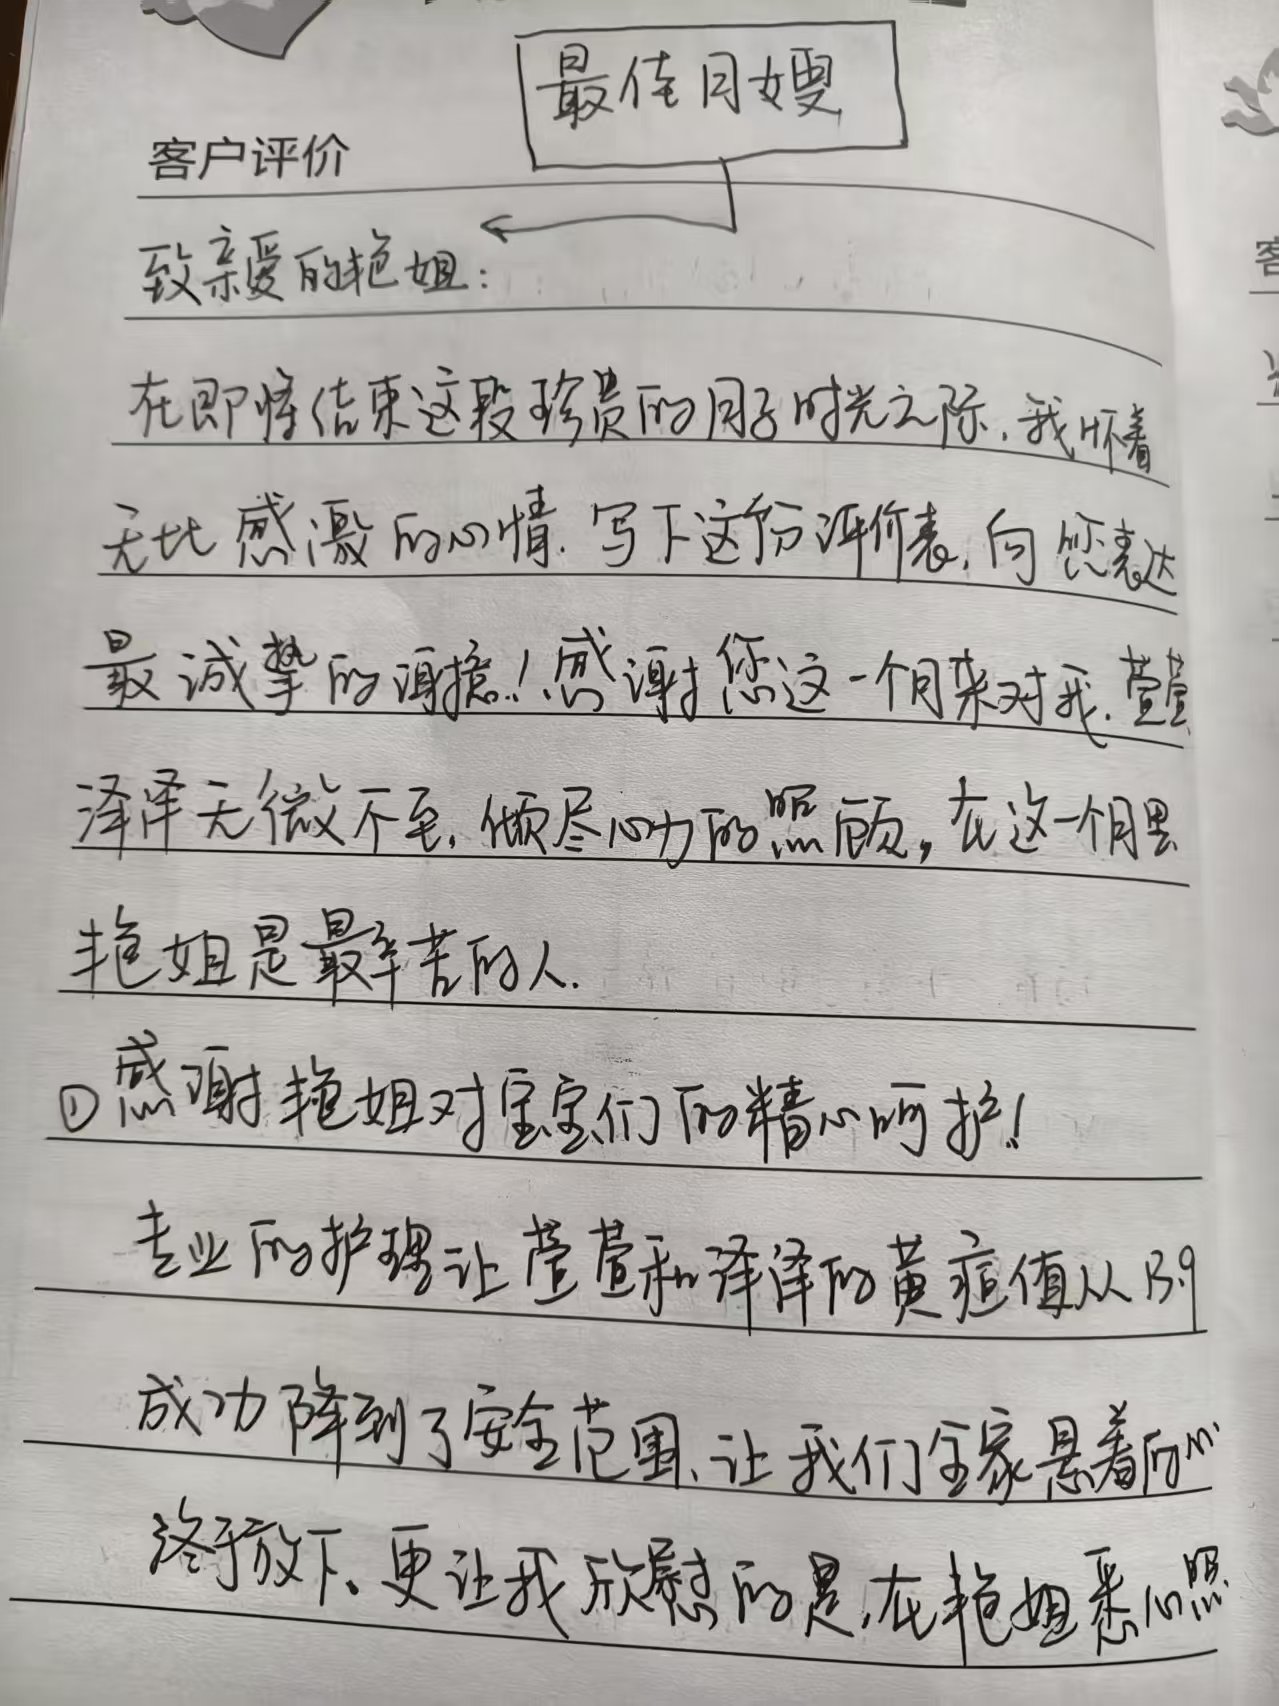 最佳月嫂
客户评价
致亲爱的艳姐：
在即将结束这段珍贵的月子时光之际，我怀着
无比感激的心情，写下这份评价表，向您表达
最诚挚的谢意！感谢您这一个月来对我，萱萱
泽泽无微不至，倾尽心力的照顾，在这一个月里
艳姐是最辛苦的人．
①感谢艳姐对宝宝们的精心呵护！
专业的护理让萱萱和泽泽的黄疸值从13.9
成功降到了安全范围、让我们全家悬着的心
终于放下、更让我欣慰的是，在艳姐悉心照